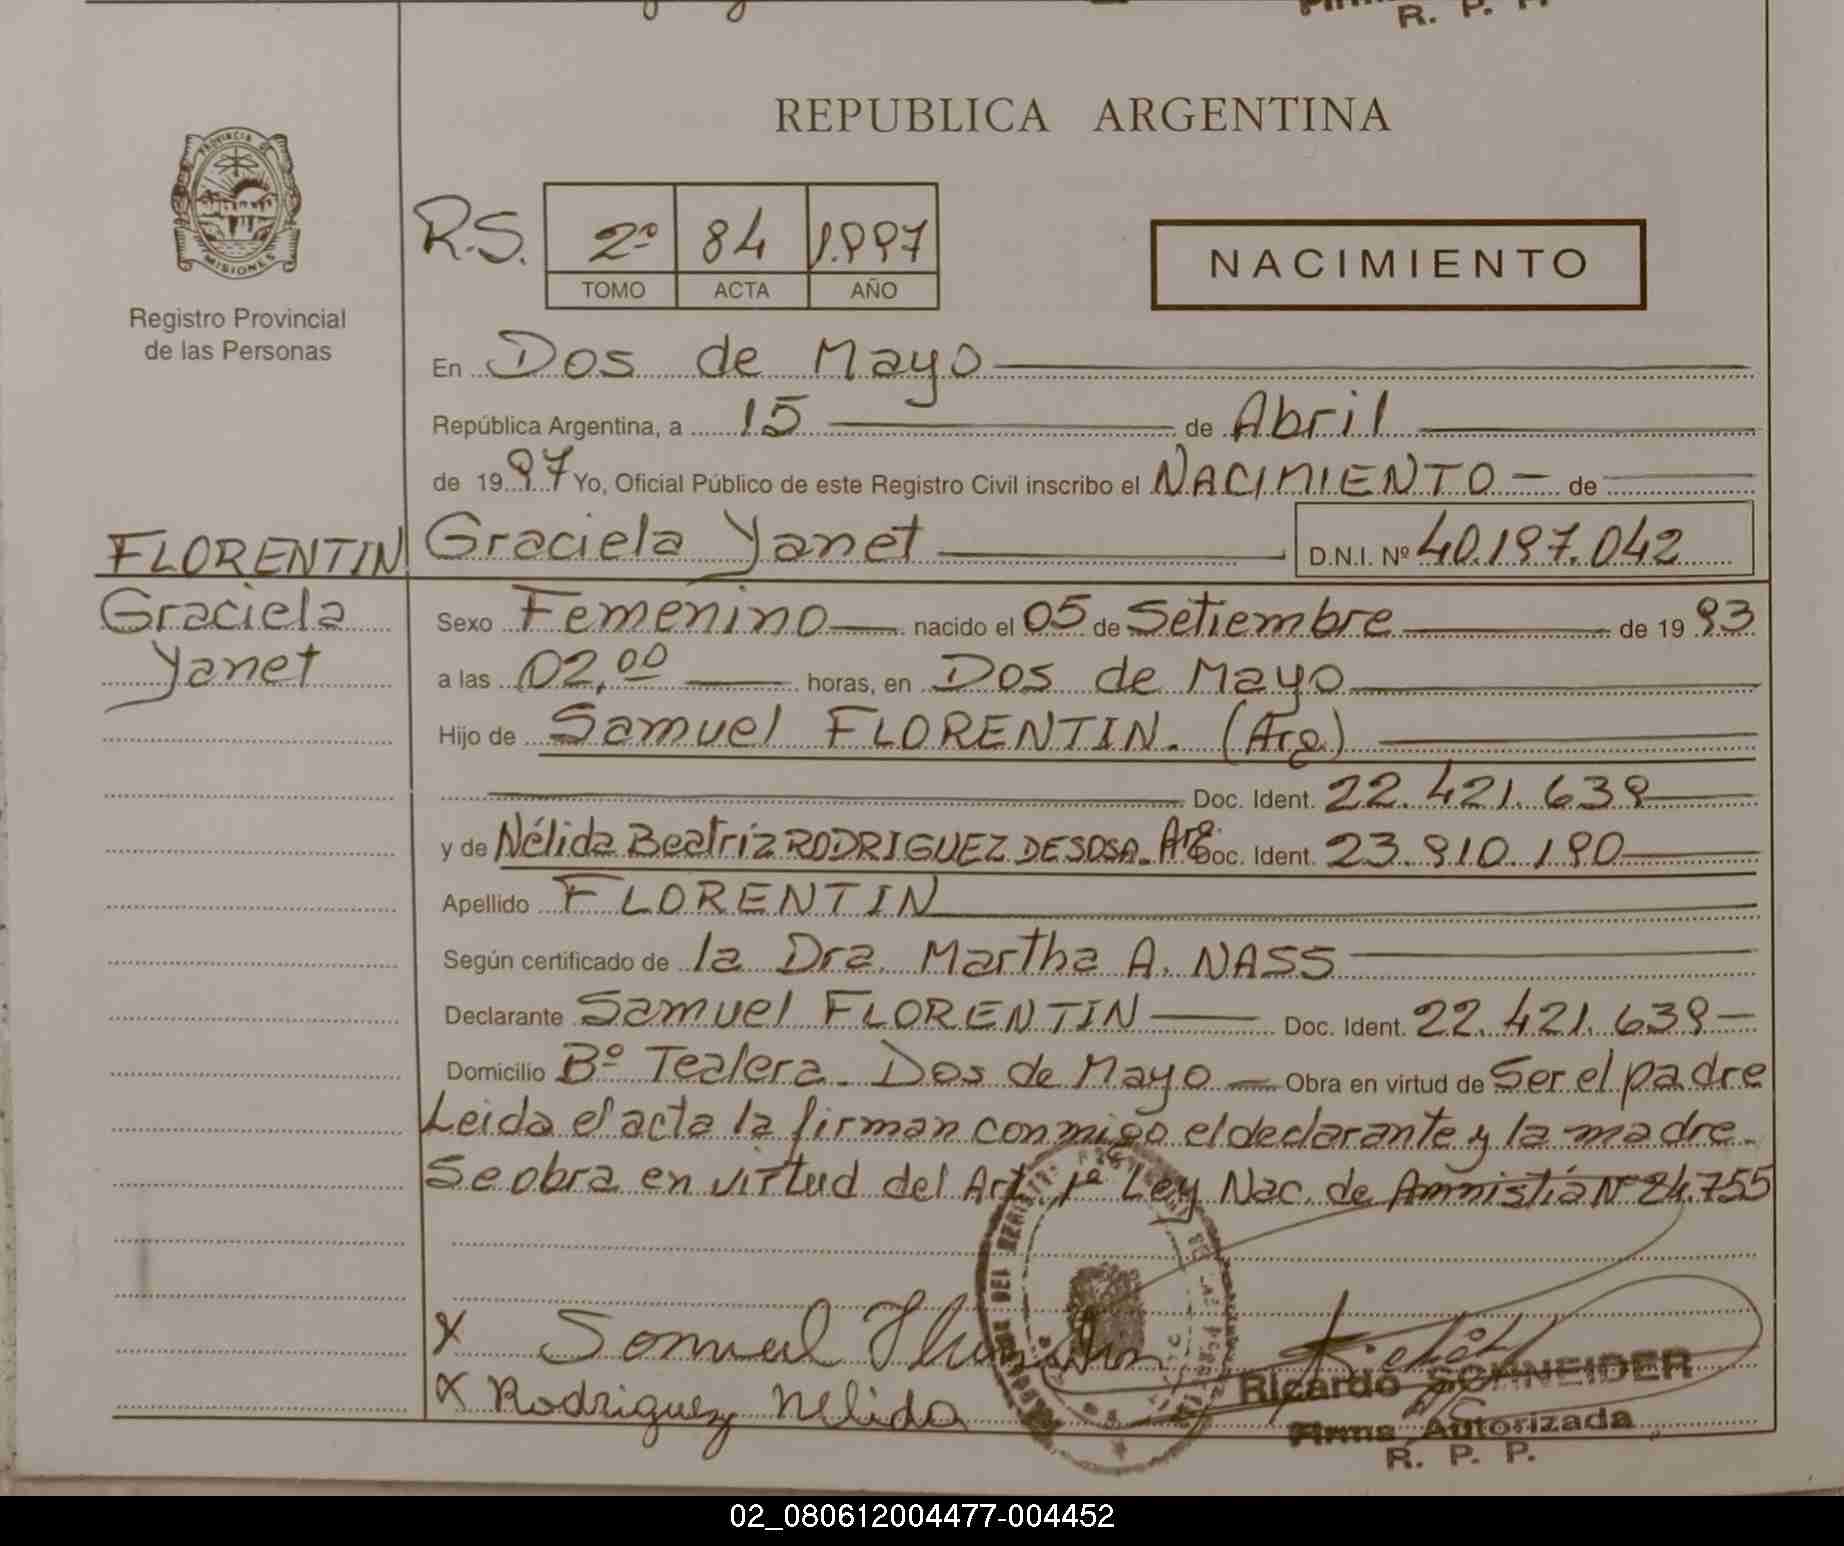 R. P. P.
REPUBLICA ARGENTINA
PROVINCIA DE
MISIONES
Registro Provincial
de las Personas
R.S. 2º 84 1.997
TOMO ACTA AÑO
NACIMIENTO
En Dos de Mayo
República Argentina, a 15 de Abril
de 1997 Yo, Oficial Público de este Registro Civil inscribo el NACIMIENTO - de
FLORENTIN Graciela Yanet D.N.I. Nº 40.197.042
Graciela
Yanet
Sexo Femenino nacido el 05 de Setiembre de 1993
a las 02,00 horas, en Dos de Mayo
Hijo de Samuel FLORENTIN. (Arg.)
Doc. Ident. 22.421.639
y de Nélida Beatriz RODRIGUEZ DE SOSA. Arg. Doc. Ident. 23.910.190
Apellido FLORENTIN
Según certificado de la Dra. Martha A. NASS
Declarante Samuel FLORENTIN Doc. Ident. 22.421.639
Domicilio Bº Tealera. Dos de Mayo Obra en virtud de Ser el padre
Leida el acta la firman conmigo el declarante y la madre.
Se obra en virtud del Art. 1º Ley Nac. de Amnistía Nº 24.755
X Samuel Florentin
X Rodriguez Nelida
Ricardo SCHNEIDER
Firma Autorizada
R. P. P.
02_080612004477-004452